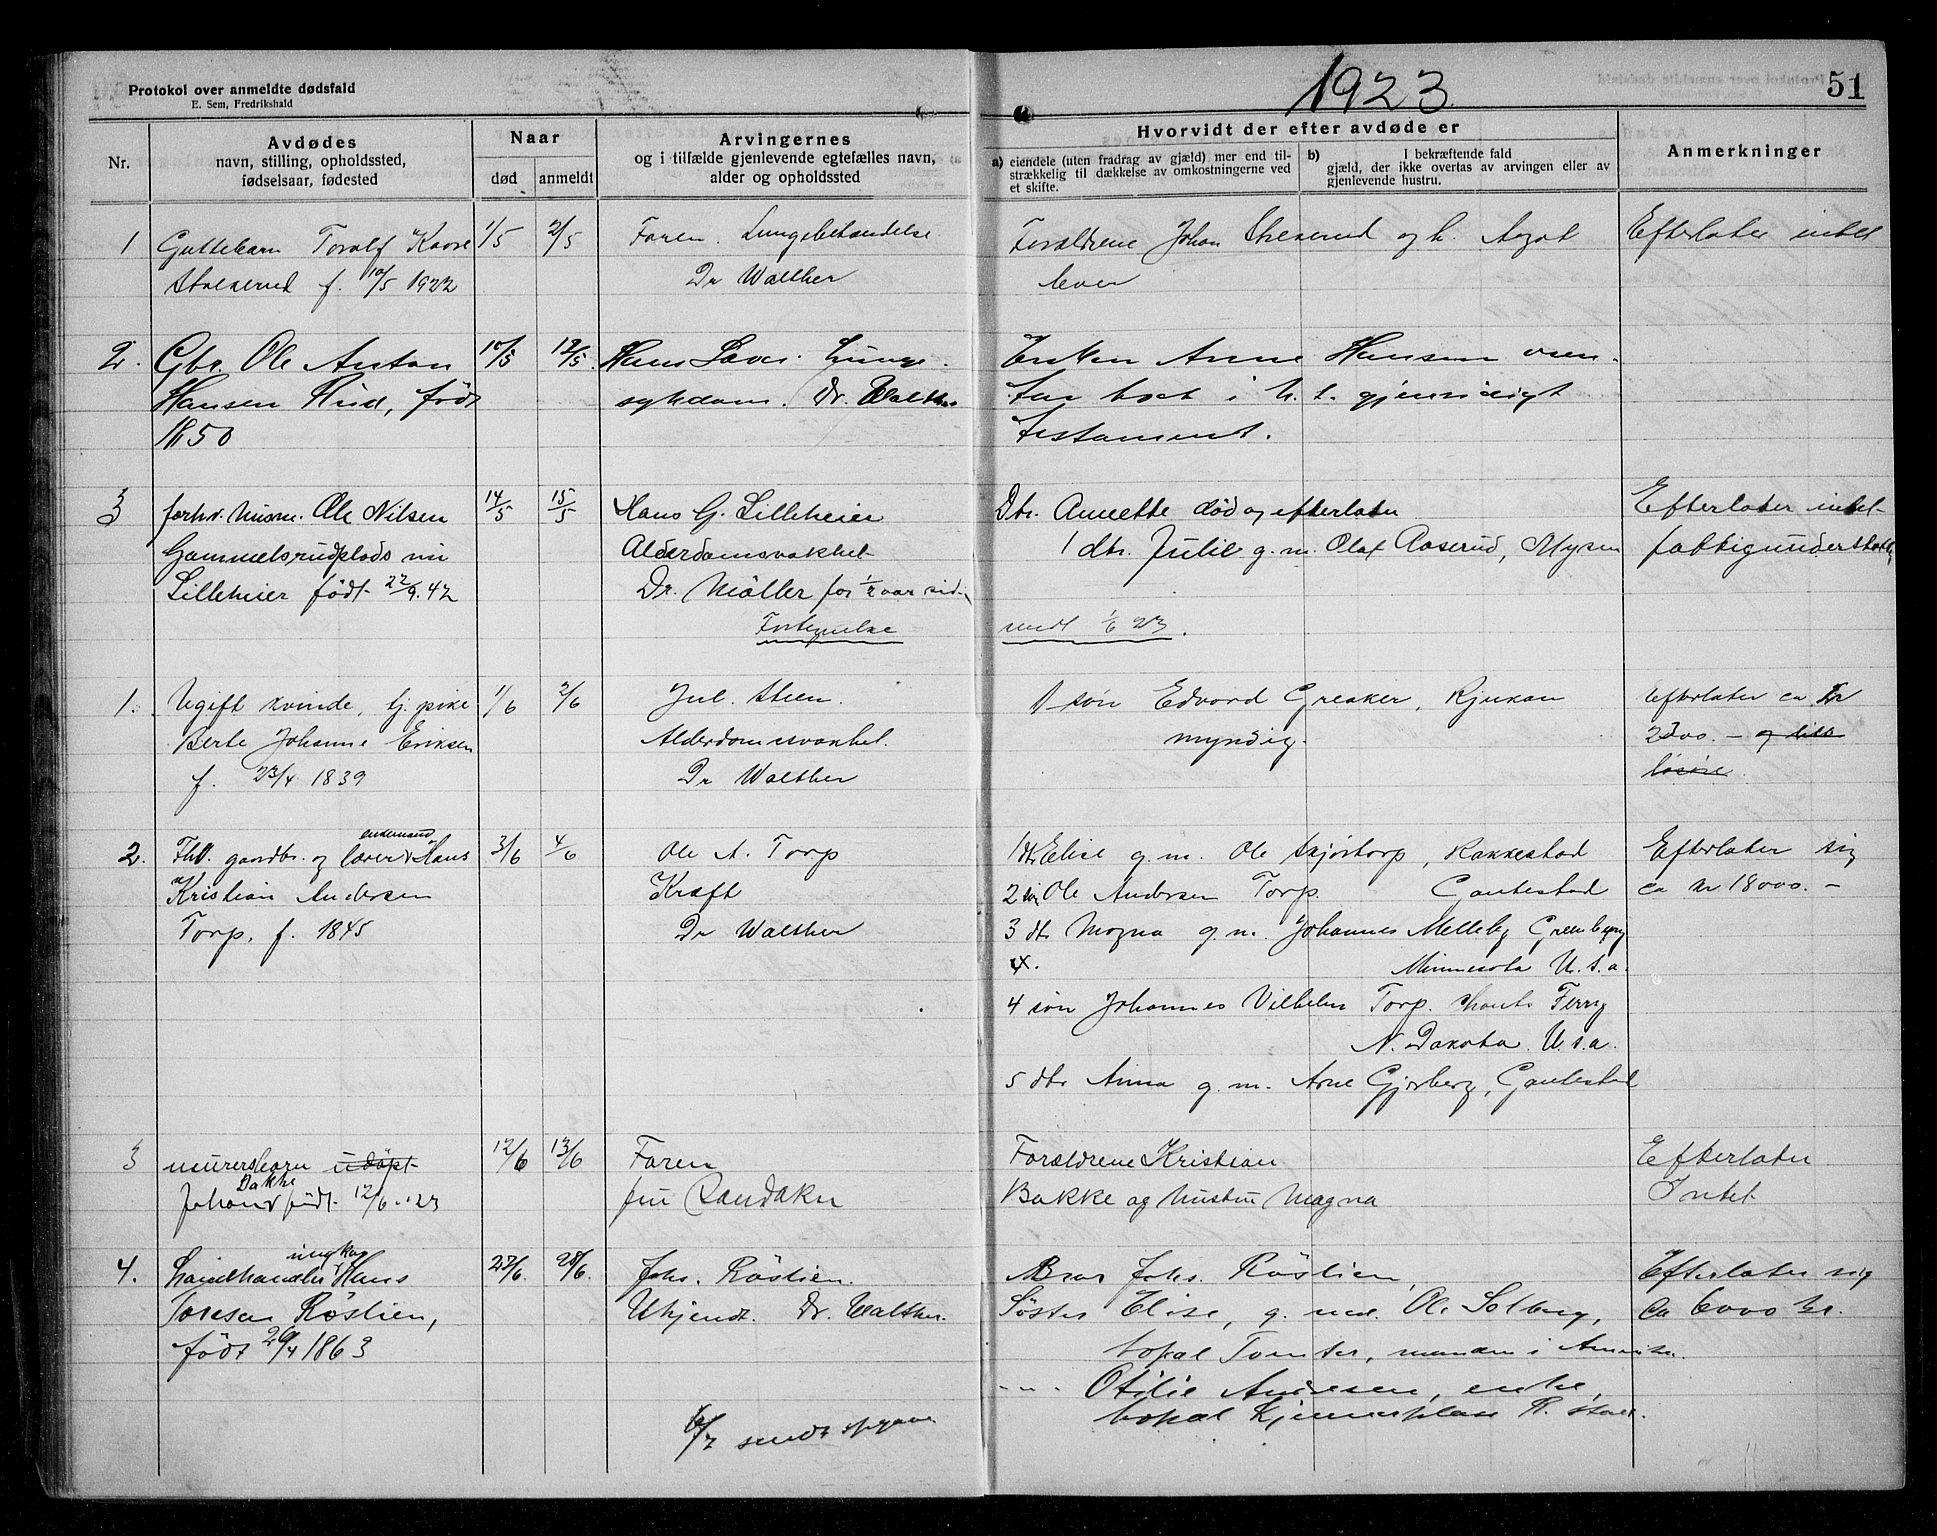 Protokol over anmeldte dødsfald
E. Sem, Fredrikshald
1923
51
Nr.
Avdødes
navn, stilling, opholdssted,
fødselsaar, fødested
Naar
død
anmeldt
Arvingernes
og i tilfælde gjenlevende egtefælles navn,
alder og opholdssted
Hvorvidt der efter avdøde er
a) eiendele (uten fradrag av gjæld) mer end til-
strækkelig til dækkelse av omkostningerne ved
et skifte.
b) I bekræftende fald
gjæld, der ikke overtas av arvingen eller av
gjenlevende hustru.
Anmerkninger
1
Guttebarn Toralf Kaare
f. 10/5 1922
1/5
2/5
Faren. Lungebetændelse
Dr Walther
Forældrene Johan og h. Aagot
lever
Efterlater intet
2.
Gbr. Ole Anton
Hansen Rud, født
1850
10/5
12/5.
Hans Lunge-
sykdom. Dr. Walther
Enken Anne Hansen
boet i h. t. gjensidigt
testament.
3
forhv. husm. Ole Nilsen
Gammelsrudplads nu
Lilleheier født 22/9. 42
14/5
15/5
Hans G. Lilleheier
Alderdomsvakhet
Dr. Möller for 1/2 aar sid.
Fortegnelse
Dtr. Annette død og efterlater
1 dtr. Julie g. m. Olaf Aaserud, Mysen
sendt 1/6 23.
Efterlater intet
fattigunderstøttet
1.
Ugift kvinde, tj. pike
Berte Johanne Eriksen
f. 23/4 1839
1/6
2/6
Jul. Steen.
Alderdomsvakhet.
Dr Walther
1 søn Edvard Greaker, Rjukan
myndig.
Efterlater ca kr
2300.- og litt
løsøre.
2.
Fhv. gaardbr. og lærer enkemand Hans
Kristian Andersen
Torp, f. 1845
3/6
4/6
Ole A. Torp
Kræft
Dr Walther
1 dtr Elise g. m. Ole Skjørtorp, Rakkestad
2 søn Ole Andersen Torp. Gautestad
3 dtr Magna g. m. Johannes Melleby
4.
Minnesota U. S. a.
4 søn Johannes Vilhelm Torp. Shants Ferry
N. Dakota. U. S. a.
5 dtr Anna g. m. Arne Gjerberg, Gautestad
Efterlater sig
ca kr 18000.-
3
murersbarn udöpt
Johan Bakke født 12/6.-23
12/6
13/6
Faren
fru Randaker
Forældrene Kristian
Bakke og hustru Magna
Efterlater
Intet
4.
Landhandler ungkar Hans
Toresen Röstien,
født 20/4 1863
27/6.
28/6.
Johs. Röstien.
Ukjendt. Dr. Walther.
Bror Johs. Röstien,
Søster Elise, g. med Ole Solberg,
bopæl Tomter, manden i Amerika.
-"- Otilie Andresen, enke,
bopæl
Efterlater sig
ca 6000 kr.
6/7 sendt opgave